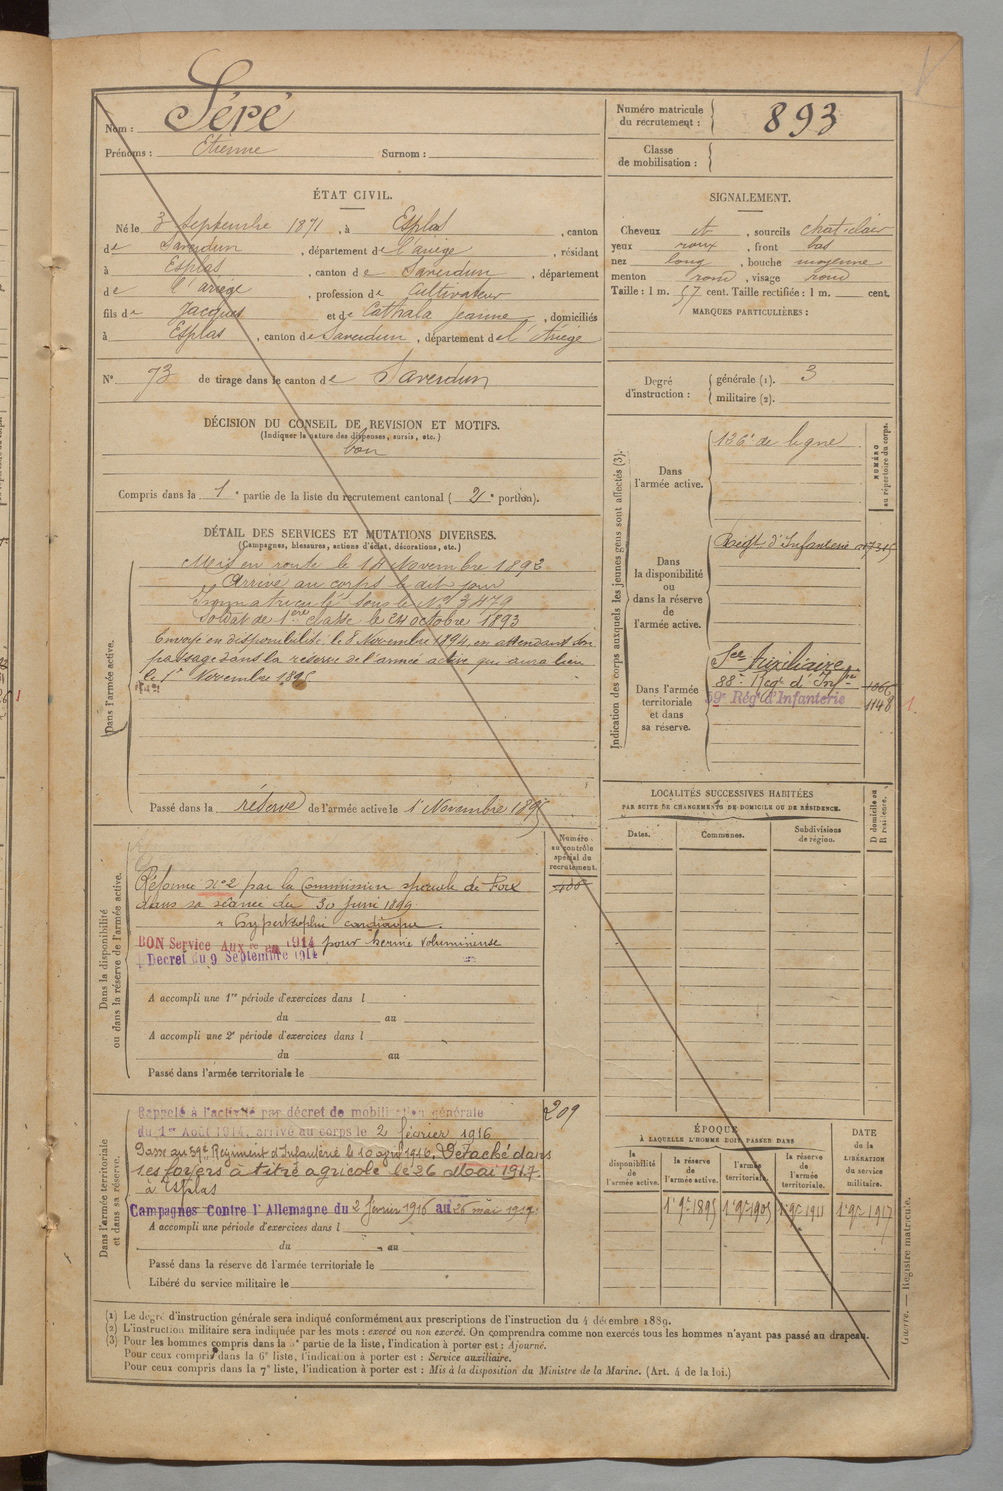 Nom : Séré
Prénoms : Etienne Surnom :
Numéro matricule du recrutement : 893
Classe de mobilisation :
ÉTAT CIVIL.
Né le 3 Septembre 1871, à Esplas, canton
de Saverdun, département de l'ariège, résidant
à Esplas, canton de Saverdun, département
de l'ariège, profession de Cultivateur
fils de Jacques et de Cathala Jeanne, domiciliés
à Esplas, canton de Saverdun, département de l'Ariège
N° 73 de tirage dans le canton de Saverdun
SIGNALEMENT.
Cheveux et, sourcils chat. clair
yeux roux, front bas
nez long, bouche moyenne
menton rond, visage rond
Taille : 1 m. 57 cent. Taille rectifiée : 1 m. cent.
MARQUES PARTICULIÈRES :
Degré d'instruction : générale (1). 3
militaire (2).
DÉCISION DU CONSEIL DE REVISION ET MOTIFS.
(Indiquer la nature des dispenses, sursis, etc.)
bon
Compris dans la 1e partie de la liste du recrutement cantonal (2e portion).
DÉTAIL DES SERVICES ET MUTATIONS DIVERSES.
(Campagnes, blessures, actions d'éclat, décorations, etc.)
Dans l'armée active.
Mis en route le 14 Novembre 1892
Arrivé au corps le dit jour
Immatriculé sous le N° 3479
Soldat de 1ère classe le 24 octobre 1893
Envoyé en disponibilité le 8 Novembre 1894, en attendant son
passage dans la réserve de l'armée active qui aura lieu
le 1er Novembre 1895
Passé dans la réserve de l'armée active le 1er Novembre 1895
Indication des corps auxquels les jeunes gens sont affectés (3).
NUMÉRO au répertoire du corps.
Dans l'armée active.
126e de ligne
Dans la disponibilité ou dans la réserve de l'armée active.
Regt d'Infanterie
Dans l'armée territoriale et dans sa réserve.
Sce Auxiliaire
88e Regt d'Infie 1066
59e Régt d'Infanterie 1148
1.
LOCALITÉS SUCCESSIVES HABITÉES
PAR SUITE DE CHANGEMENTS DE DOMICILE OU DE RÉSIDENCE.
Dates. Communes. Subdivisions de région. D domicile ou R résidence.
Numéro au contrôle spécial du recrutement.
Dans la disponibilité ou dans la réserve de l'armée active.
Réformé N° 2 par la Commission spéciale de Foix
dans sa séance du 30 Juin 1899.
" hypertrophie cardiaque.
BON Service Auxre 1914 pour hernie volumineuse
Décret du 9 Septembre 1914
A accompli une 1re période d'exercices dans l
du au
A accompli une 2e période d'exercices dans l
du au
Passé dans l'armée territoriale le
Dans l'armée territoriale et dans sa réserve.
209
Rappelé à l'activité par décret de mobilisation générale
du 1er Août 1914, arrivé au corps le 2 février 1916
Passé au 59e Régiment d'Infanterie le 10 avril 1916. Détaché dans
ses foyers à titre agricole le 26 Mai 1917.
à Esplas
Campagnes Contre l'Allemagne du 2 février 1916 au 26 mai 1917
A accompli une période d'exercices dans l
du au
Passé dans la réserve de l'armée territoriale le
Libéré du service militaire le
ÉPOQUE
À LAQUELLE L'HOMME DOIT PASSER DANS
la disponibilité de l'armée active. la réserve de l'armée active. l'armée territoriale. la réserve de l'armée territoriale.
DATE de la LIBÉRATION du service militaire.
1er 9bre 1895 1er 9bre 1905 1er 9bre 1911 1er 9bre 1917
(1) Le degré d'instruction générale sera indiqué conformément aux prescriptions de l'instruction du 4 décembre 1889.
(2) L'instruction militaire sera indiquée par les mots : exercé ou non exercé. On comprendra comme non exercés tous les hommes n'ayant pas passé au drapeau.
(3) Pour les hommes compris dans la 5e partie de la liste, l'indication à porter est : Ajourné.
Pour ceux compris dans la 6e liste, l'indication à porter est : Service auxiliaire.
Pour ceux compris dans la 7e liste, l'indication à porter est : Mis à la disposition du Ministre de la Marine. (Art. 4 de la loi.)
Guerre. — Registre matricule.